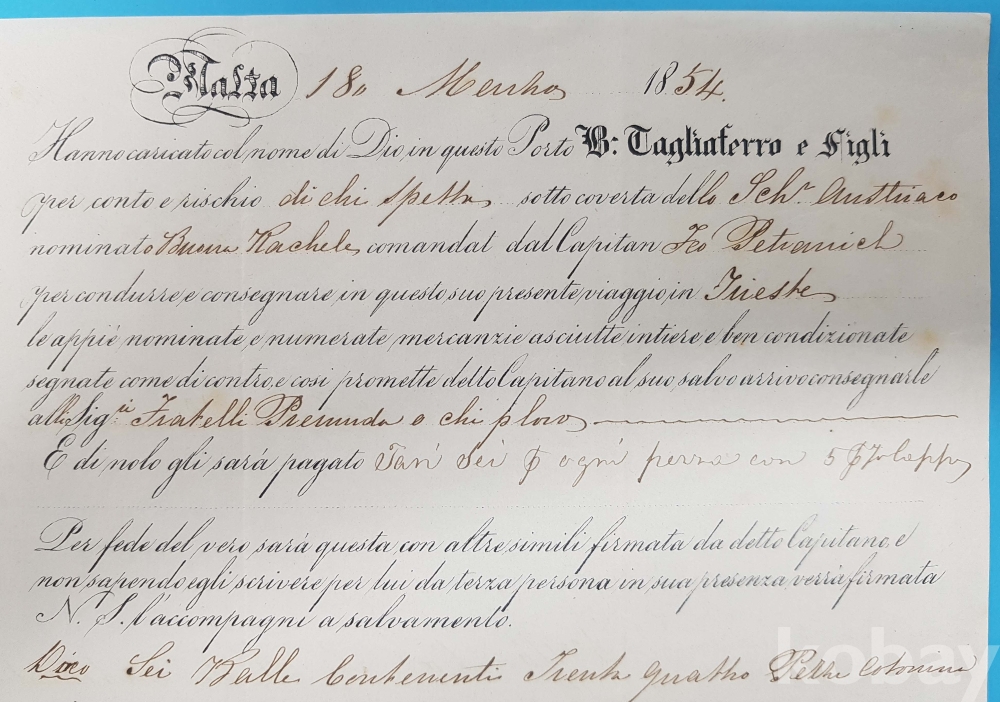 Malta 18 Marzo 1854.
Hanno caricato col nome di Dio, in questo Porto B: Tagliaferro e Figli
per conto e rischio di chi spetta sotto coverta dello Sch.r Austriaco
nominato Buona Rachele comandat dal Capitan Petranich
per condurre, e consegnare, in questo suo presente viaggio in Trieste
le appiè nominate e numerate, mercanzie asciutte intiere e ben condizionate
segnate come di contro, e così promette detto Capitano al suo, salvo arrivo consegnarle
alli Sig.ri Fratelli Premuda o chi p loro
E di nolo gli sarà pagato Tarì Sei ogni pezza con 5 cappa
Per fede del vero sarà questa con altre simili firmata da detto Capitano, e
non sapendo egli scrivere per lui da terza persona in sua presenza verrà firmata
N. S. l'accompagni a salvamento.
Dico Sei Balle Contenenti Trenta quattro Pezze Cotonine
kobay